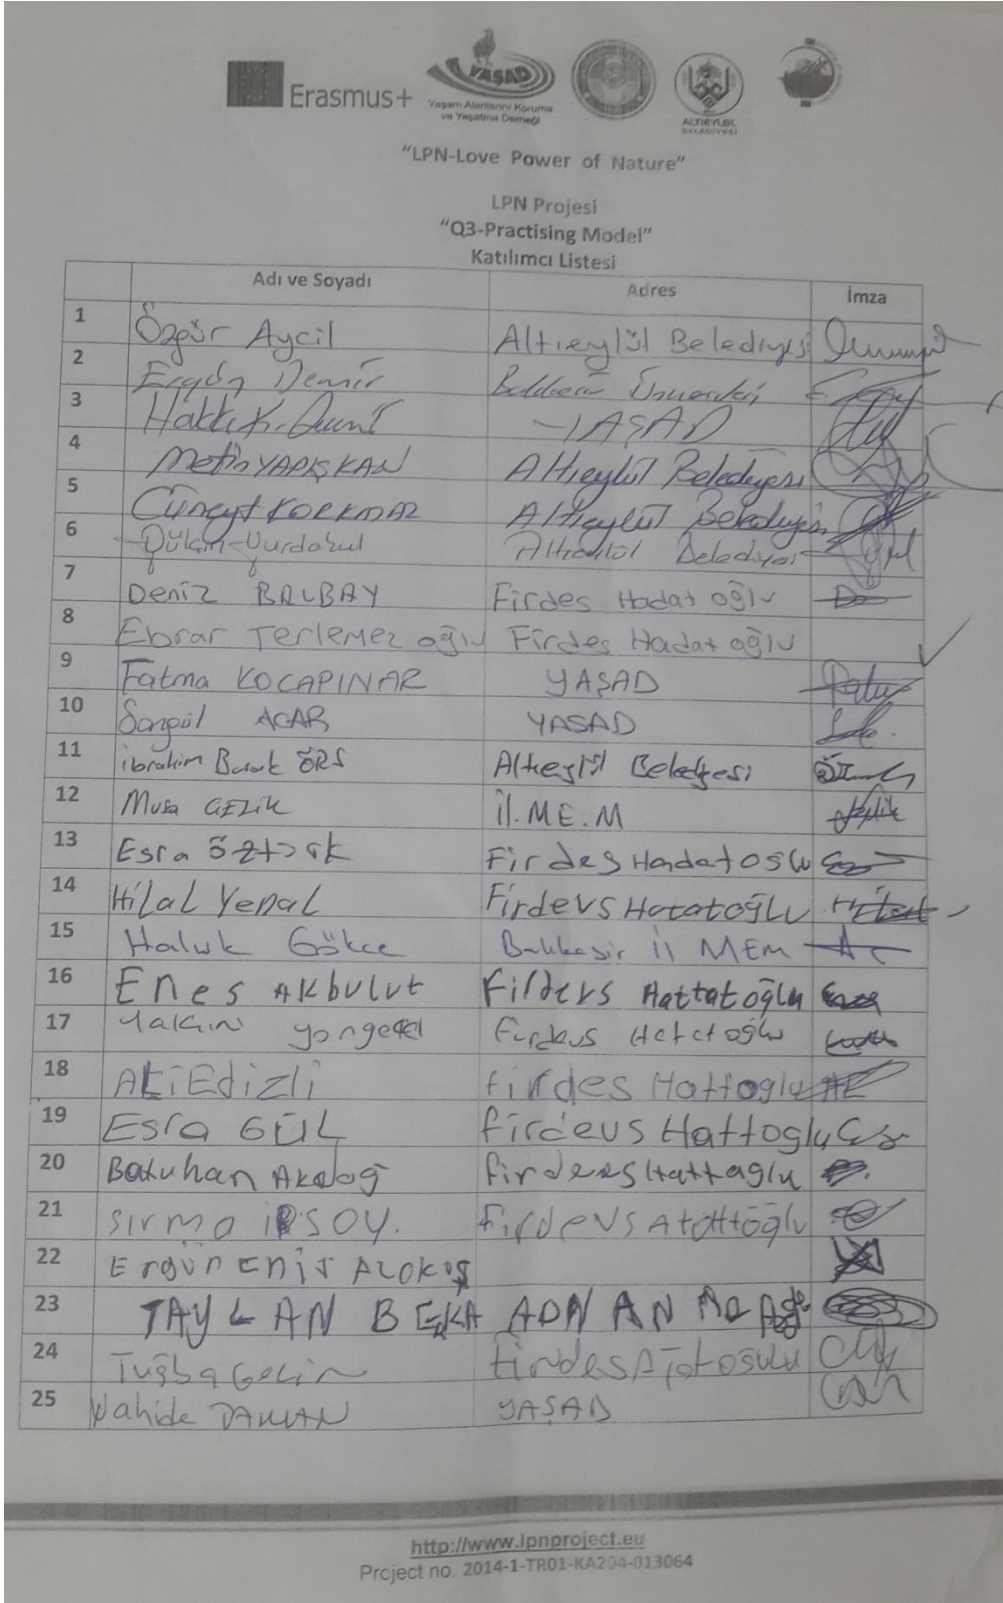 Erasmus+
YAŞAD
Yaşam Alanlarını Koruma
ve Yaşatma Derneği
ALTIEYLÜL
BELEDİYESİ
“LPN-Love Power of Nature”
LPN Projesi
“Q3-Practising Model”
Katılımcı Listesi
Adı ve Soyadı Adres İmza
1 Özgür Aycil Altıeylül Belediyesi
2 Ergün Demir
3 YAŞAD
4 Metin YAPIŞKAN Altıeylül Belediyesi
5 Cüneyt KORKMAZ Altıeylül Belediyesi
6 Altıeylül Belediyesi
7 Deniz BALBAY Firdes Hadat oğlu
8 Ebrar Terlemez oğlu Firdes Hadat oğlu
9 Fatma KOCAPINAR YAŞAD
10 Songül ACAR YASAD
11 ibrahim Burak ÖRS Altıeylül Belediyesi
12 Musa GEZİK İl.ME.M
13 Esra öztürk Firdes Hadatoğlu
14 Hilal Yenal Firdevs Hatatoğlu
15 Haluk Gökce Balıkesir İl MEM
16 Enes AKbulut Filders Hattatoğlu
17
18 ALİ Edizli firdes Hattoglu
19 Esra GÜL firdeus Hattoglu
20 Batuhan
21 sırma Firdevs Atattoğlu
22 Ergün Enis
23 TAYLAN ADNAN
24 Tuğba Gelin
25 Vahide YAŞAD
http://www.lpnproject.eu
Project no. 2014-1-TR01-KA204-013064